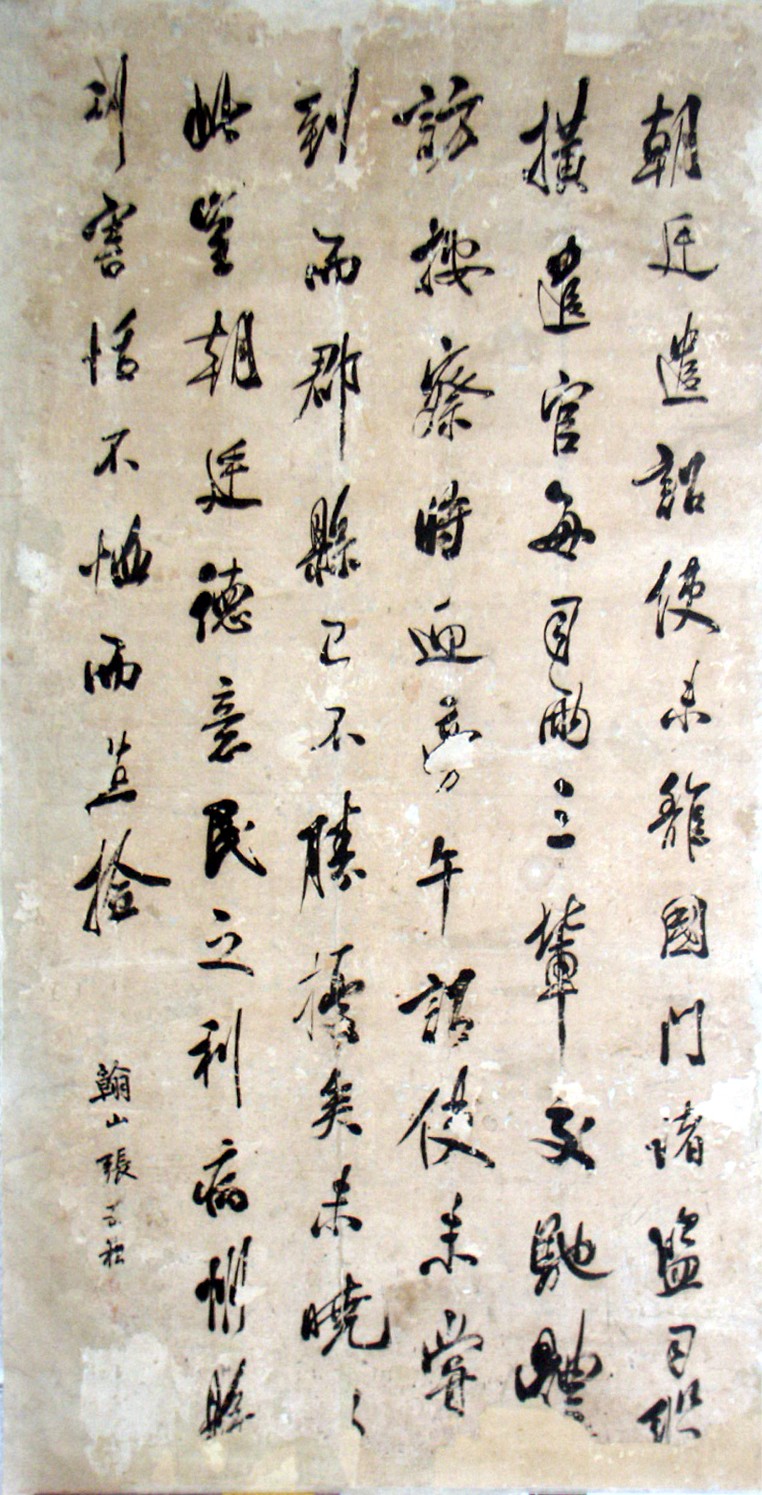 朝廷遣詔使未離國門諸監司縱
橫遣官每司兩三輩交馳疊
訪按察時迎旁午詔使未嘗
到而郡縣已不勝擾矣未曉
此豈朝廷德意民之利病州縣
利害恬不恤而撿
翰山張